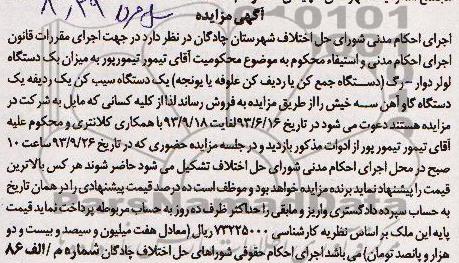 آگهی مزایده
اجرای احکام مدنی شورای حل اختلاف شهرستان چادگان در نظر دارد در جهت اجرای مقررات قانون
اجرای احکام مدنی و استیفاء محکوم به موضوع محکومیت آقای تیمور تیمورپور به میزان یک دستگاه
لودر دوار -رگ (دستگاه جمع کن یا ردیف کن علوفه یا یونجه) یک دستگاه سیب کن یک ردیفه یک
دستگاه گاو آهن سه خیش را از طریق مزایده به فروش رساند لذا از کلیه کسانی که مایل به شرکت در
مزایده هستند دعوت می شود در تاریخ ۹۳/۶/۱۶ لغایت ۹۳/۹/۱۸ با همکاری کلانتری و محکوم علیه
آقای تیمور تیمور پور از ادوات مذکور بازدید و در جلسه مزایده حضوری که در تاریخ ۹۳/۹/۲۶ ساعت ۱۰
صبح در محل اجرای احکام مدنی شورای حل اختلاف تشکیل می شود حاضر شوند هر کس بالاترین
قیمت را پیشنهاد نماید برنده مزایده خواهد بود و موظف است ده درصد قیمت پیشنهادی را در همان تاریخ
به حساب سپرده دادگستری واریز و مابقی را حداکثر ظرف ده روز به حساب مربوطه پرداخت نماید قیمت
پایه این ملک بر اساس نظریه کارشناسی ۷۳۲۲۵۰۰۰ ریال (معادل هفت میلیون و سیصد و بیست و دو
هزار و پانصد تومان) می باشد اجرای احکام حقوقی شوراهای حل اختلاف چادگان شماره م / الف ۸۶